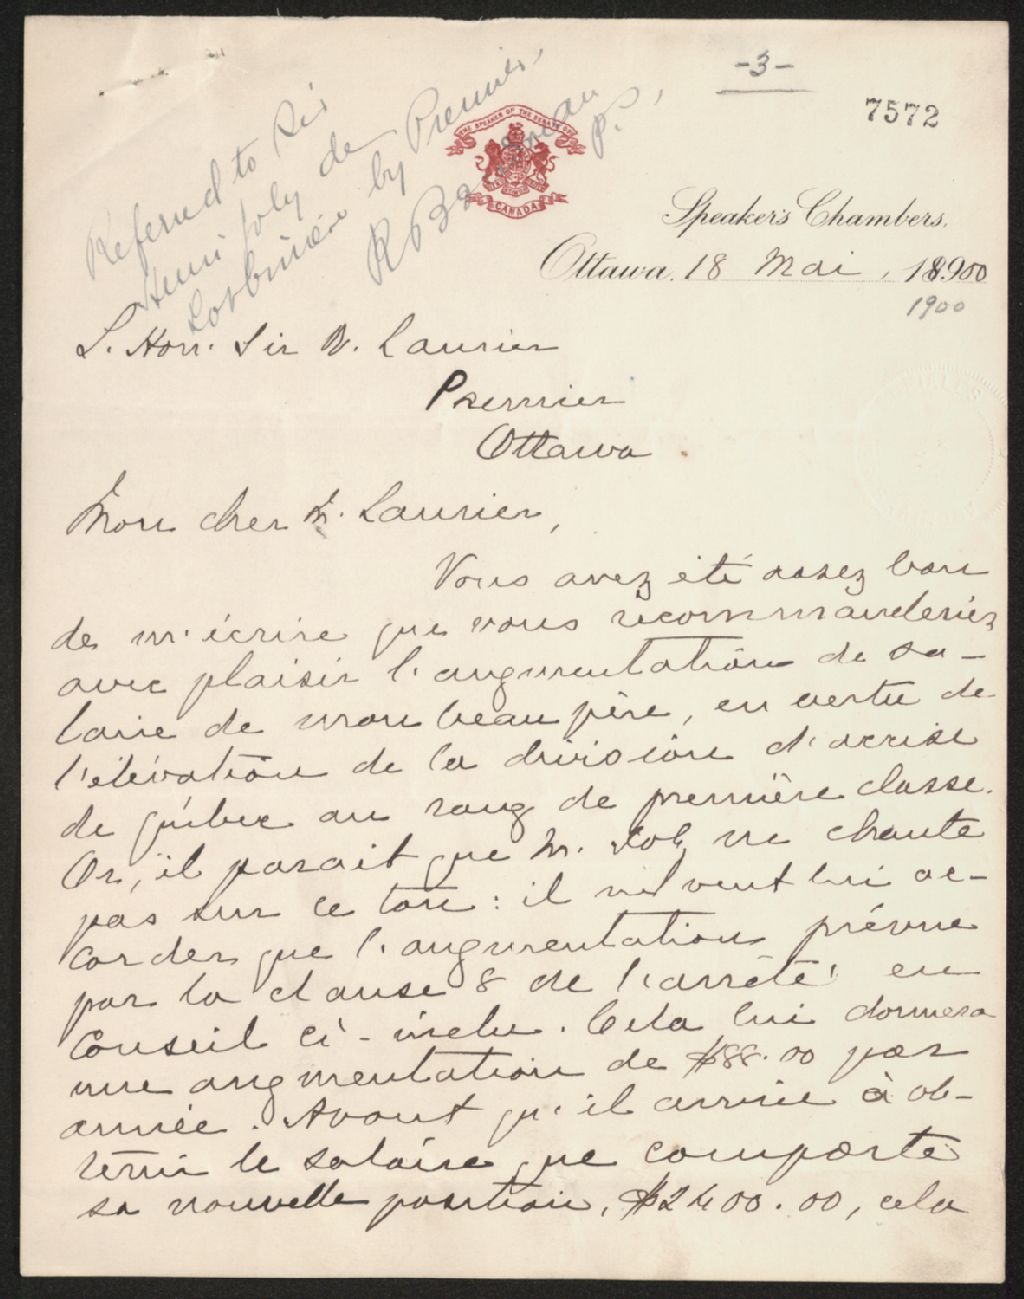 -3-
7572
Referred to Sir
Henri Joly de
Lotbinière by Premier
R B
P.
THE SPEAKER OF THE SENATE OF
CANADA
Speaker's Chambers,
Ottawa, 18 Mai, 18900
1900
L. Hon. Sir W. Laurier
Premier
Ottawa.
Mon cher M. Laurier,
Vous avez été assez bon
de m'écrire que vous recommanderiez
avec plaisir l'augmentation de sa-
laire de mon beau père, en vertu de
l'élévation de la division d'accise
de Québec au rang de première classe.
Or, il parait que M. ne chante
pas sur ce ton: il ne veut lui ac-
corder que l'augmentation prévue
par la clause 8 de l'arrêté en
Conseil ci-inclu. Cela lui donnera
une augmentation de $88.00 par
année. Avant qu'il arrive à ob-
tenir le salaire que comporte
sa nouvelle position, $2400.00, cela